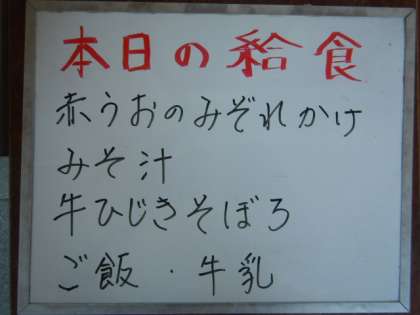 本日の給食
赤うおのみぞれかけ
みそ汁
牛ひじきそぼろ
ご飯・牛乳